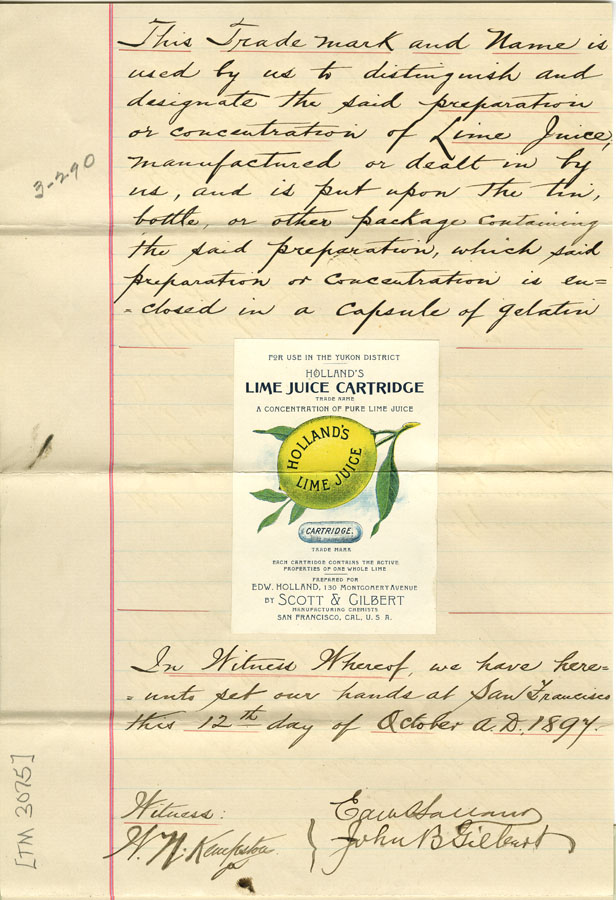 This Trade mark and Name is
used by us to distinguish and
designate the said preparation
or concentration of Lime Juice,
manufactured or dealt in by
us, and is put upon the tin,
bottle, or other package containing
the said preparation, which said
preparation or concentration is en=
=closed in a capsule of gelatin
3-2-90
FOR USE IN THE YUKON DISTRICT
HOLLAND'S
LIME JUICE CARTRIDGE
TRADE NAME
A CONCENTRATION OF PURE LIME JUICE
HOLLAND'S
LIME JUICE
CARTRIDGE.
TRADE MARK
EACH CARTRIDGE CONTAINS THE ACTIVE
PROPERTIES OF ONE WHOLE LIME
PREPARED FOR
EDW. HOLLAND, 130 MONTGOMERY AVENUE
BY SCOTT & GILBERT
MANUFACTURING CHEMISTS
SAN FRANCISCO, CAL., U. S. A.
In Witness Whereof, we have here=
=unto set our hands at San Francisco
this 12th day of October A.D. 1897.
[TM 3075]
Witness:
Edw Holland
John B Gilbert